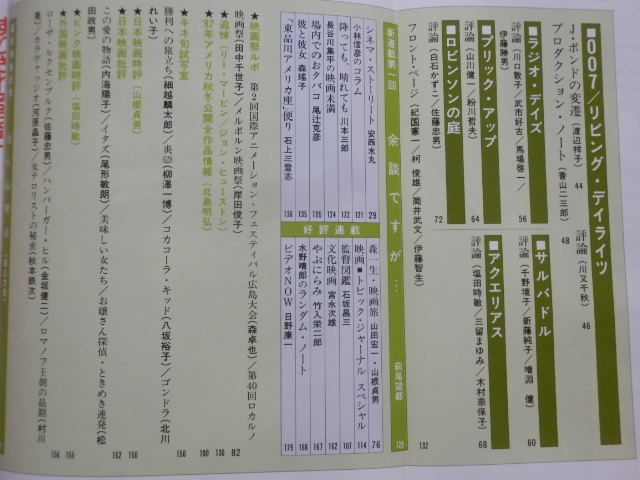 ■007/リビング・デイライツ
J・ボンドの変遷(渡辺祥子) 44
評論(川又千秋) 46
プロダクション ノート(香山二三郎) 48
■ラジオ・デイズ
評論(川口敦子/武市好古/馬場啓一/伊藤勝男) 56
■サルバドル
評論(千野境子/新藤純子/増淵 健) 60
■ブリック・アップ
評論(山川健一/粉川哲夫) 64
■アクエリアス
評論(塩田時敏/三留まゆみ/木村奈保子) 68
■ロビンソンの庭
評論(白石かずこ/佐藤忠男) 72
フロント・ページ(紀国憲一/柯 俊雄/筒井武文/伊藤智生) 132
新連載第一回 余談ですが… 萩尾望都 121
シネマ・ストーリート 安西水丸 29
小林信彦のコラム 121
降っても、晴れても 川本三郎 122
長谷川集平の映画未満 124
場内でのおタバコ 尾辻克彦 126
彼と彼女 森瑤子 135
「東品川アメリカ座」便り 石上三登志 136
好評連載
森一生・映画旅 山田宏一・山根貞男 76
映画■トピック・ジャーナル スペシャル 114
監督図鑑 石坂昌三 107
文化映画 宮永次雄 162
やぶにらみ 竹入栄二郎 167
水野晴郎のランダム・ノート 168
ビデオNOW 日野康一 179
★映画祭ルポ 第2回国際アニメーション・フェスティバル広島大会(森卓也)/第40回ロカルノ
映画祭(田中千世子)/メルボルン映画祭(岸田俊子) 82
★追悼(リー・マービン/ジョン・ヒューストン) 130
★'87年アメリカ秋季公開全作品情報(北島明弘) 100
★キネ旬試写室 150
勝利への旅立ち(細越麟太郎)/炎(柳澤一博)/コカコーラ・キッド(八坂裕子)/ゴンドラ(北川
れい子)
★日本映画時評(山根貞男) 150
★日本映画批評 152
この愛の物語(内海陽子)/イタズ(尾形敏朗)/美味しい女たち/お嬢さん探偵・ときめき連発(松
田政男)
★ピンク映画時評(塩田時敏) 155
★外国映画批評 156
ローザ・ルクセンブルク(佐藤忠男)/ハンバーガー・ヒル(金坂健二)/ロマノフ王朝の最期(村川
英)/カラヴァッジオ(河原晶子)/女テロリストの秘密(秋本鉄次)